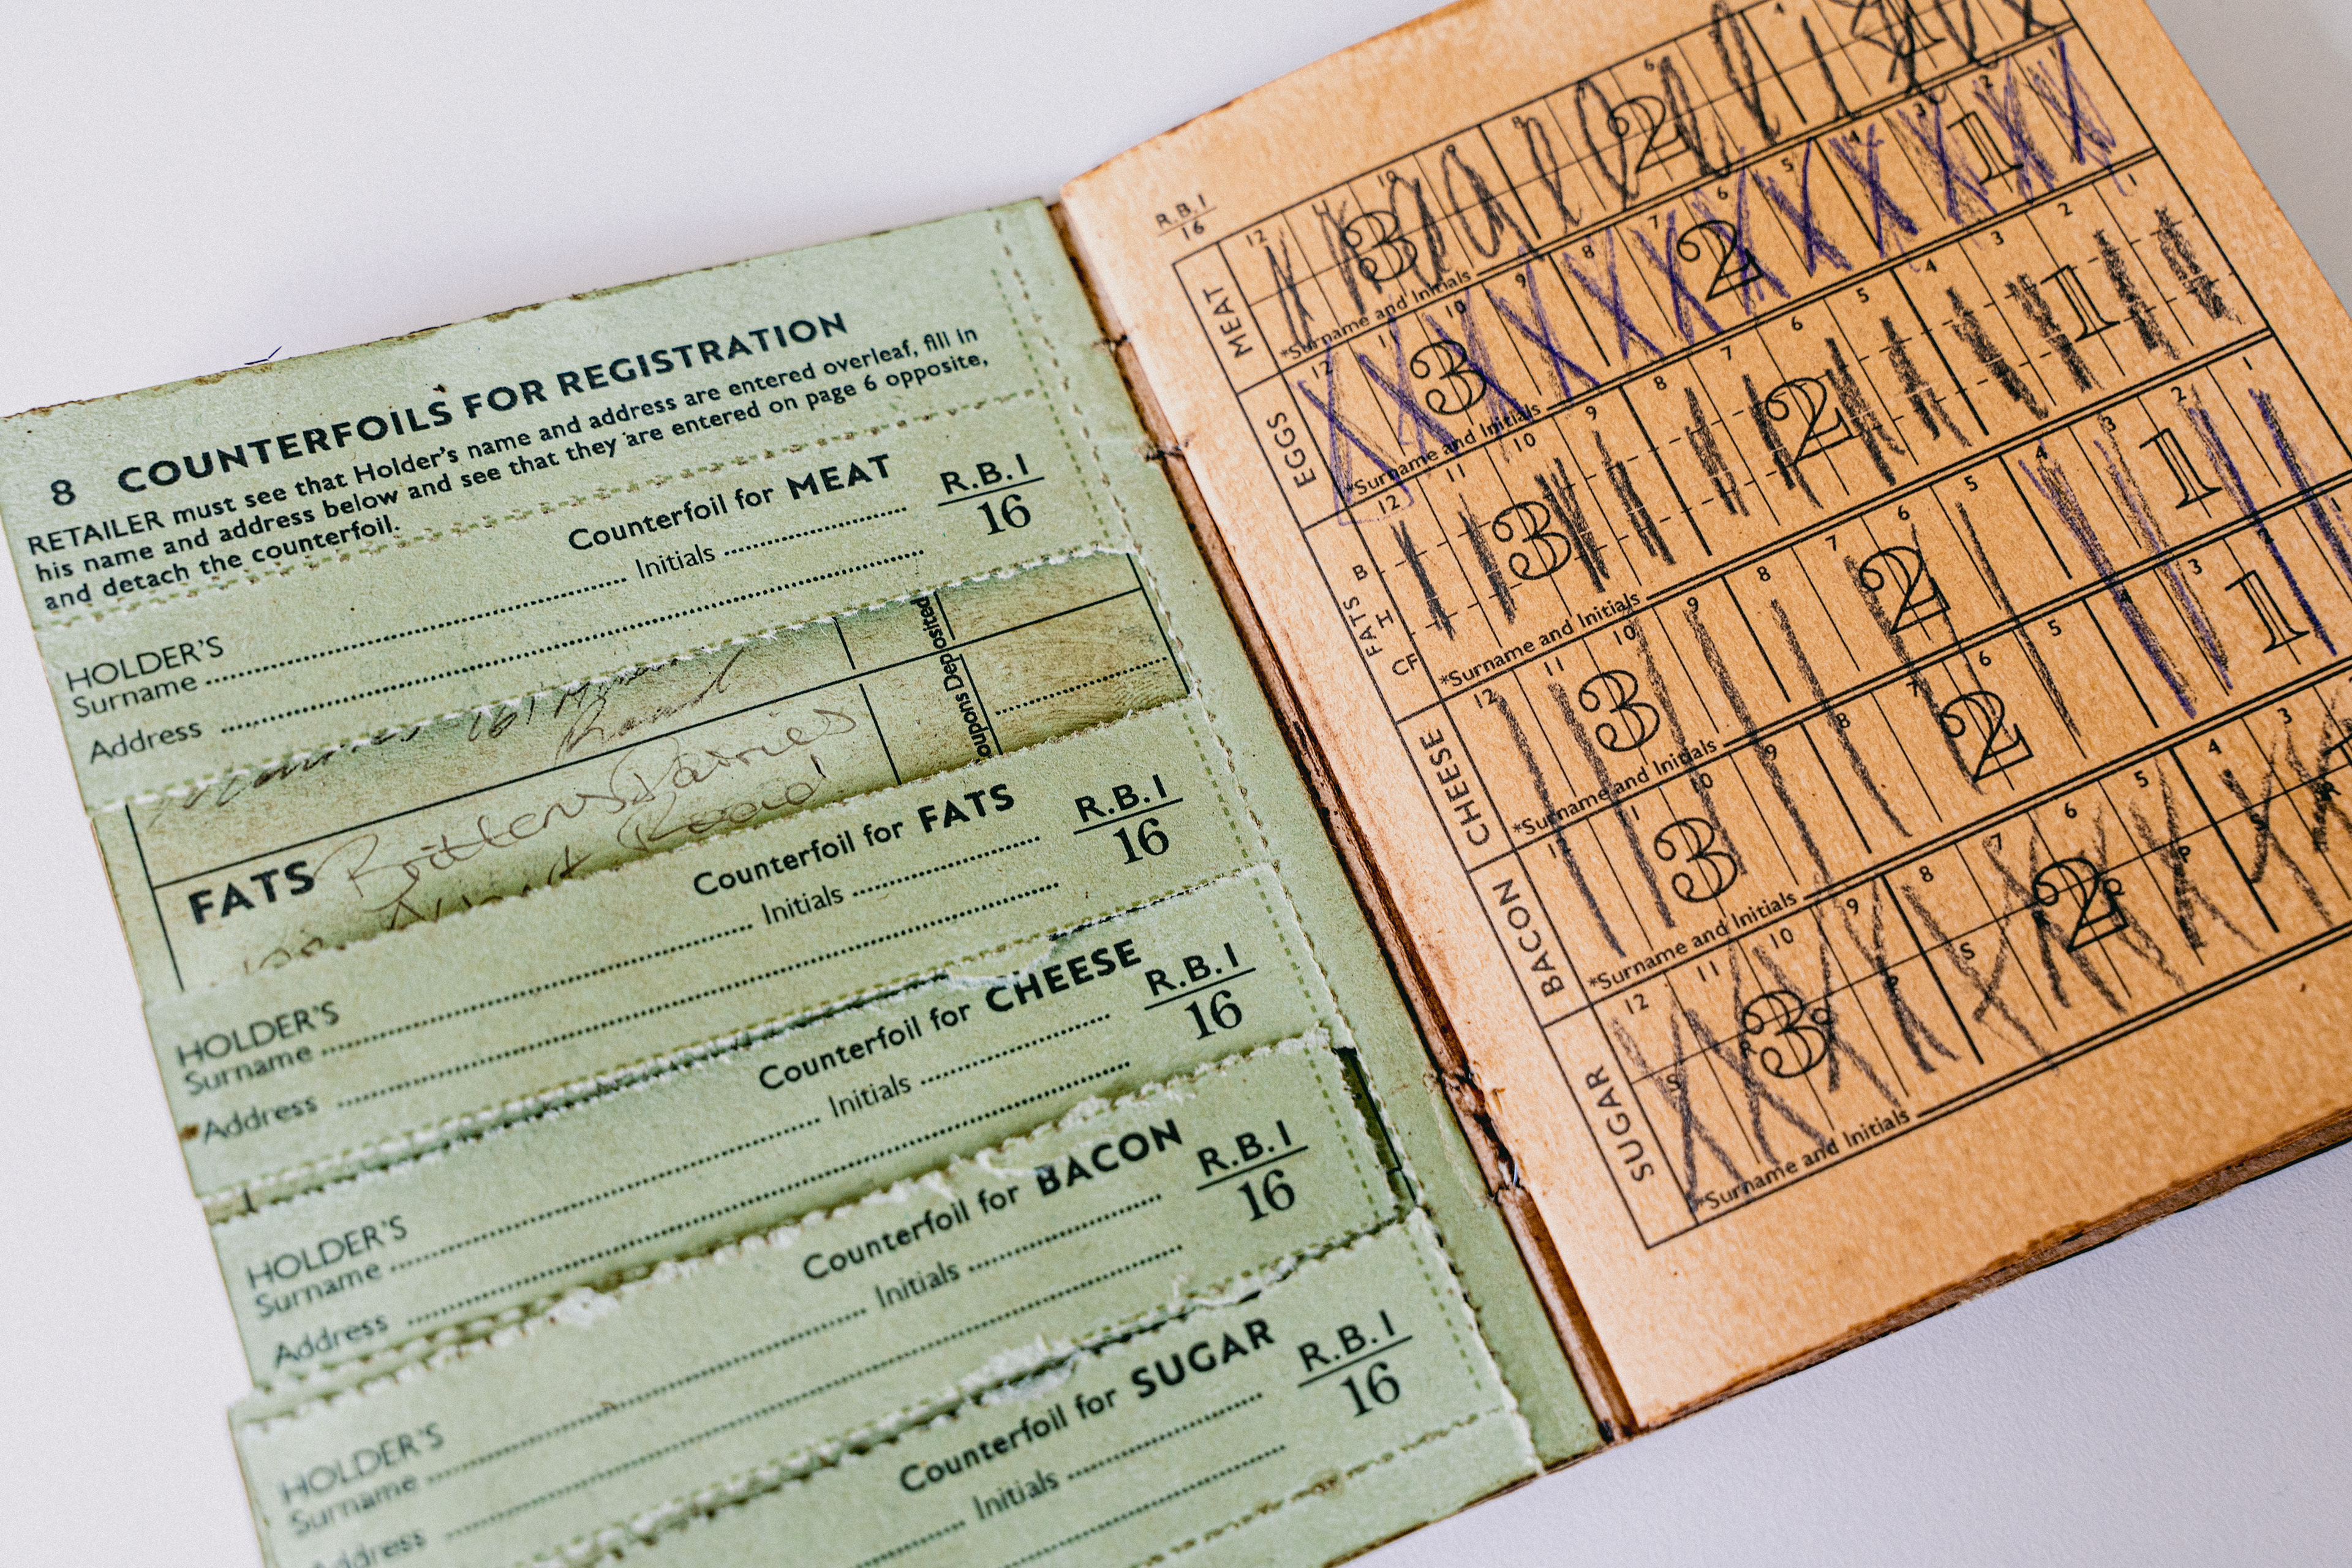 8 COUNTERFOILS FOR REGISTRATION
RETAILER must see that Holder's name and address are entered overleaf, fill in
his name and address below and see that they are entered on page 6 opposite,
and detach the counterfoil.
Counterfoil for MEAT
R.B.1
16
HOLDER'S
Surname Initials
Address
161
Road
Coupons Deposited
FATS Brittens Dairies
Road
Counterfoil for FATS
R.B.1
16
HOLDER'S
Surname Initials
Address
Counterfoil for CHEESE
R.B.1
16
HOLDER'S
Surname Initials
Address
Counterfoil for BACON
R.B.1
16
HOLDER'S
Surname Initials
Address
Counterfoil for SUGAR
R.B.1
16
HOLDER'S
Surname Initials
Address
R.B.1
16
MEAT
12 10 9 8 6 4
3 2 1
*Surname and Initials
EGGS
12 10 9 8 7 6 5 4 3 2
3 2 1
*Surname and Initials
FATS
B
I
CF
12 11 10 9 8 7 6 5 4 3 2 1
3 2 1
*Surname and Initials
CHEESE
12 11 10 9 8 7 6 5 4 3 2 1
3 2 1
*Surname and Initials
BACON
10 9 8 7 6 5 3
3 2 1
*Surname and Initials
SUGAR
12 11 10 9 8 7 6 5 4 3
S P S P S
3 2
*Surname and Initials